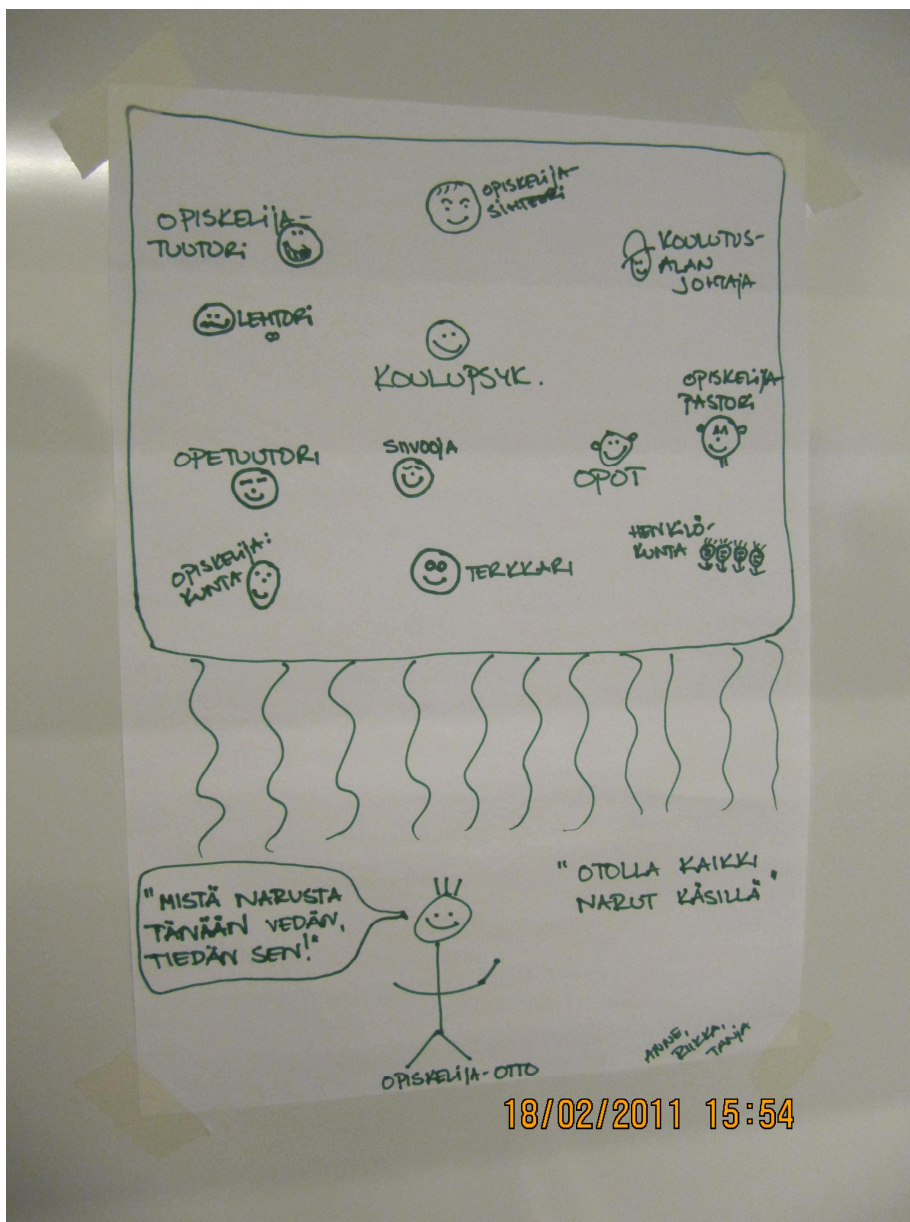 OPISKELIJA-
SIHTEERI
OPISKELIJA-
TUUTORI
KOULUTUS-
ALAN
JOHTAJA
LEHTORI
KOULUPSYK.
OPISKELIJA-
PASTORI
OPETUUTORI
SIIVOOJA
OPOT
OPISKELIJA-
KUNTA
TERKKARI
HENKILÖ-
KUNTA
"MISTÄ NARUSTA
TÄNÄÄN VEDÄN,
TIEDÄN SEN!"
"OTOLLA KAIKKI
NARUT KÄSILLÄ"
OPISKELIJA-OTTO
ANNE,
RIIKKA,
TANJA
18/02/2011 15:54